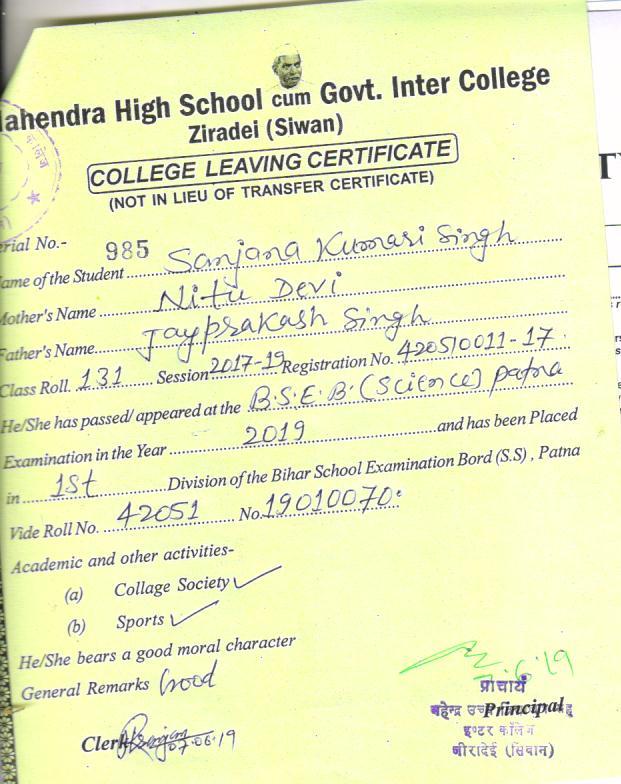 ahendra High School cum Govt. Inter College
Ziradei (Siwan)
COLLEGE LEAVING CERTIFICATE
(NOT IN LIEU OF TRANSFER CERTIFICATE)
erial No.- 985
ame of the Student Sanjana Kumari Singh
Mother's Name Nitu Devi
Father's Name Jayprakash Singh
Class Roll. 131 Session 2017-19 Registration No. 420510011-17
He/She has passed/ appeared at the B.S.E.B. (Science) patna
Examination in the Year 2019 and has been Placed
in 1st Division of the Bihar School Examination Bord (S.S) , Patna
Vide Roll No. 42051 No. 19010070
Academic and other activities-
(a) Collage Society
(b) Sports
He/She bears a good moral character
General Remarks Good
7.6.19
प्राचार्य
Principal
इण्टर कॉलेज
जीरादेई (सिवान)
Clerk 07.06.19